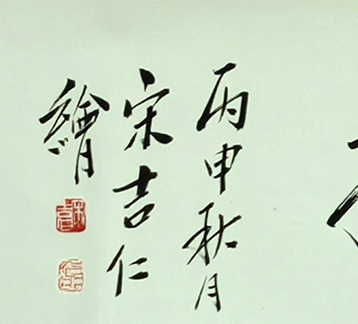 丙申秋月
宋吉仁
繪